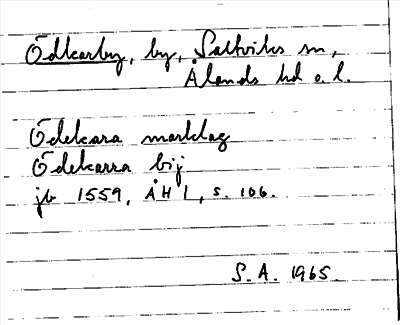 Ödkarby, by, Saltviks sn,
Ålands hd o. l.
Ödekara marklag
Ödekarra bij
jb 1559, ÅH 1, s. 106.
S. A. 1965.